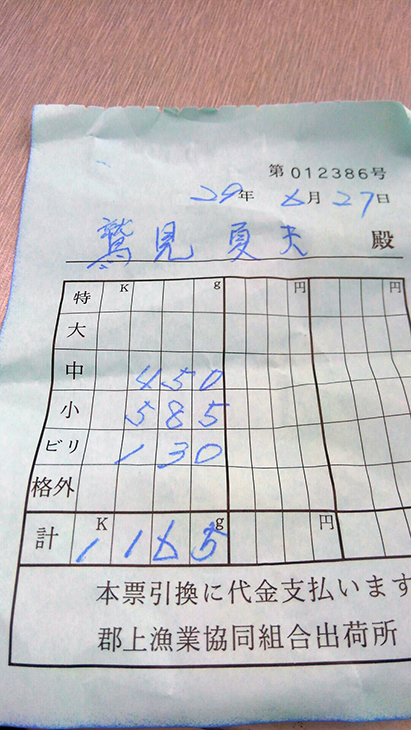 第012386号
29年 6月27日
鷲見 夏夫 殿
特 K g 円 円
大
中 450
小 585
ビリ 130
格外
計 K 1165 g 円
本票引換に代金支払います
郡上漁業協同組合出荷所